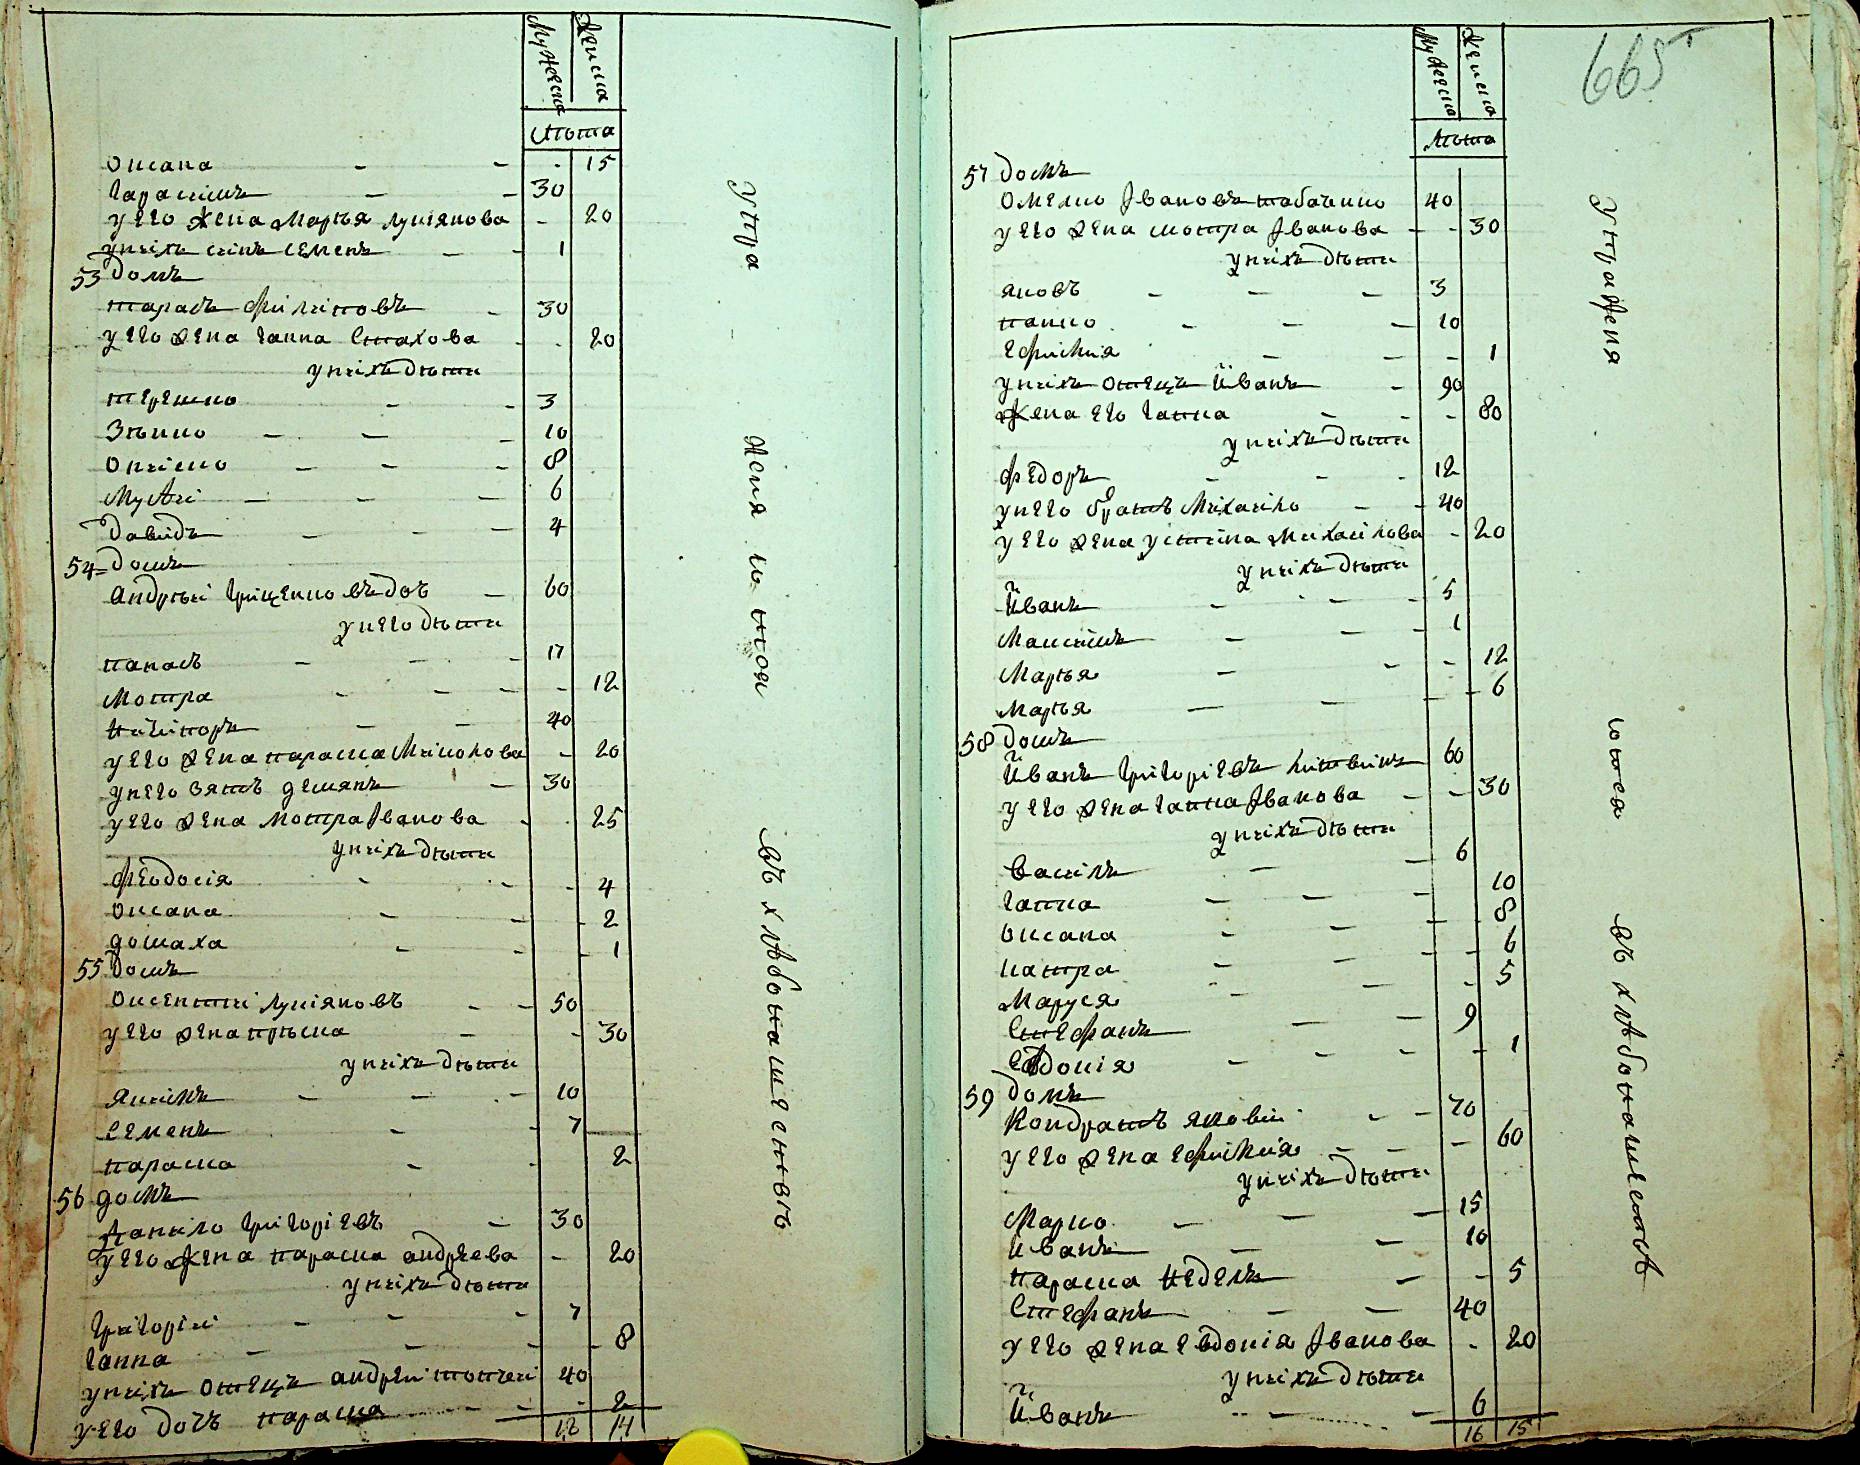 Мужеска Женска
Лѣта
Оксана - - - 15
Гарасимъ - - 30
У его жена Марья Лукіянова - 20
У нихъ синъ Семенъ - - 1
53 Домъ
Тарасъ Филиповъ - 30
У его жена Ганна Стахова - - 20
У нихъ дѣти
Терешко - - 3
Зѣнко - - - 10
Ониско - - - 8
Мусѣи - - - 6
Давидъ - - - 4
54 Домъ
Андрѣй Грищенко вѣдов - 60
У него дѣти
Панасъ - - - 17
Мотра - - - - 12
Ничипоръ - - 40
У его жена Параска Миколова - 20
У него зять Демянъ - 30
У его жена Мотра Иванова - - 25
У нихъ дѣти
Феодосія - - - 4
Оксана - - - 2
Домаха - - - 1
55 Домъ
Оксентій Лукіяновъ - - 50
У его жена Прѣска - - 30
У нихъ дѣти
Якимъ - - - 10
Семенъ - - 7
Параска - - 2
56 Домъ
Данило Григоріевъ - 30
У его жена Параска Андреева - 20
У нихъ дѣти
Григорій - - - 7
Ганна - - - - 8
У нихъ отецъ Андрей 40
У его дочъ Параска - - - 2
12 14
Утра
жен
ію
ноя
въ хлѣбопашествѣ
665
Мужеска Женска
Лѣта
57 Домъ
Омелко Ивановъ Табачико 40
У его жена Мотра Иванова - - 30
У нихъ дѣти
Яковъ - - - 3
Панко - - - 10
Ефимия - - - 1
У нихъ отецъ Иванъ - 90
Жена его Ганна - - - 80
У нихъ дѣти
Федоръ - - - 12
У него братъ Михайло - - 40
У его жена Устина Михайлова - 20
У нихъ дѣти
Иванъ - - - 5
Максимъ - - - 1
Марья - - - 12
Марья - - - - 6
58 Домъ
Иванъ Григоріевъ Литвинъ 60
У его жена Ганна Иванова - - 30
У нихъ дѣти
Василь - - 6
Ганна - - - 10
Оксана - - - 8
Катра - - - - 6
Маруся - - - 5
Стефанъ - - 9
Евдокія - - - - 1
59 Домъ
Кондратъ - - 70
У его жена Ефимия - - - 60
У нихъ дѣти
Марко - - - 15
Иванъ - - 10
Параска - - 5
Стефанъ - - 40
У его жена Евдокія Иванова - 20
У нихъ дѣти
Иванъ - - - 6
16 15
Упражня
ются
въ хлѣбопашествѣ